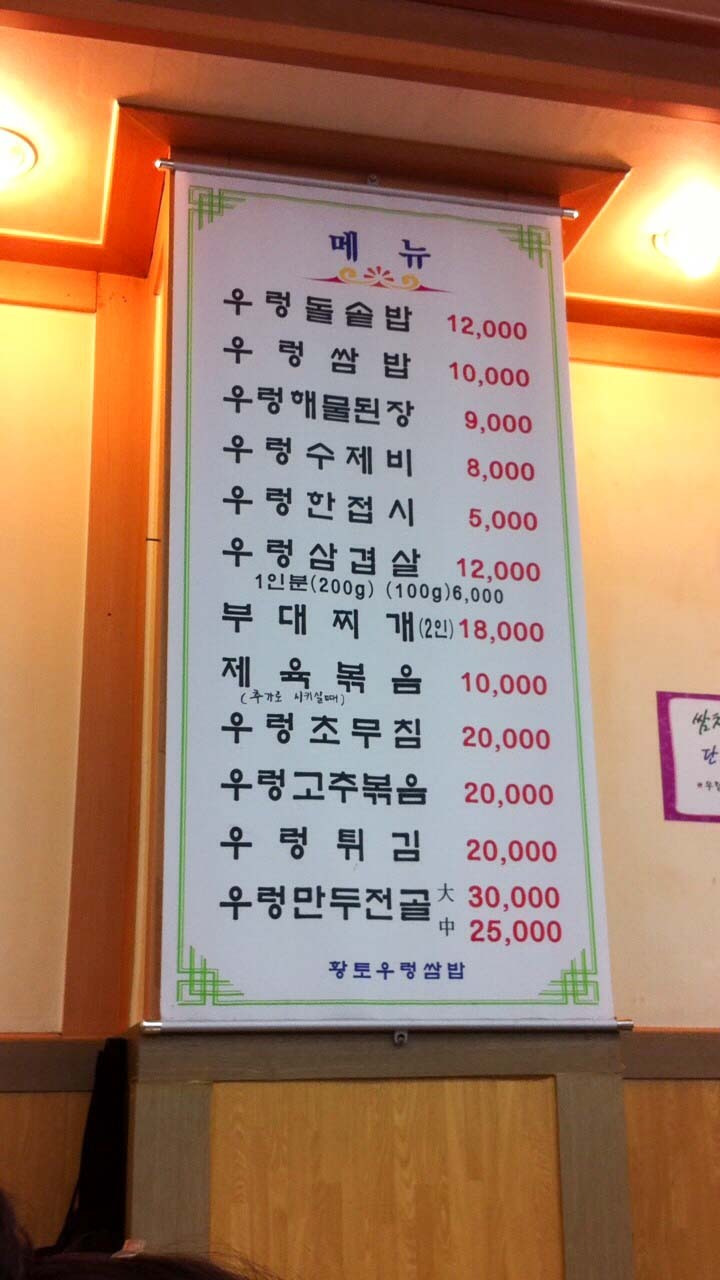 메뉴
우렁돌솥밥 12,000
우렁쌈밥 10,000
우렁해물된장 9,000
우렁수제비 8,000
우렁한접시 5,000
우렁삼겹살 12,000
1인분(200g) (100g)6,000
부대찌개(2인) 18,000
제육볶음 10,000
(추가로 시키실때)
우렁초무침 20,000
우렁고추볶음 20,000
우렁튀김 20,000
우렁만두전골 大 30,000
中 25,000
황토우렁쌈밥